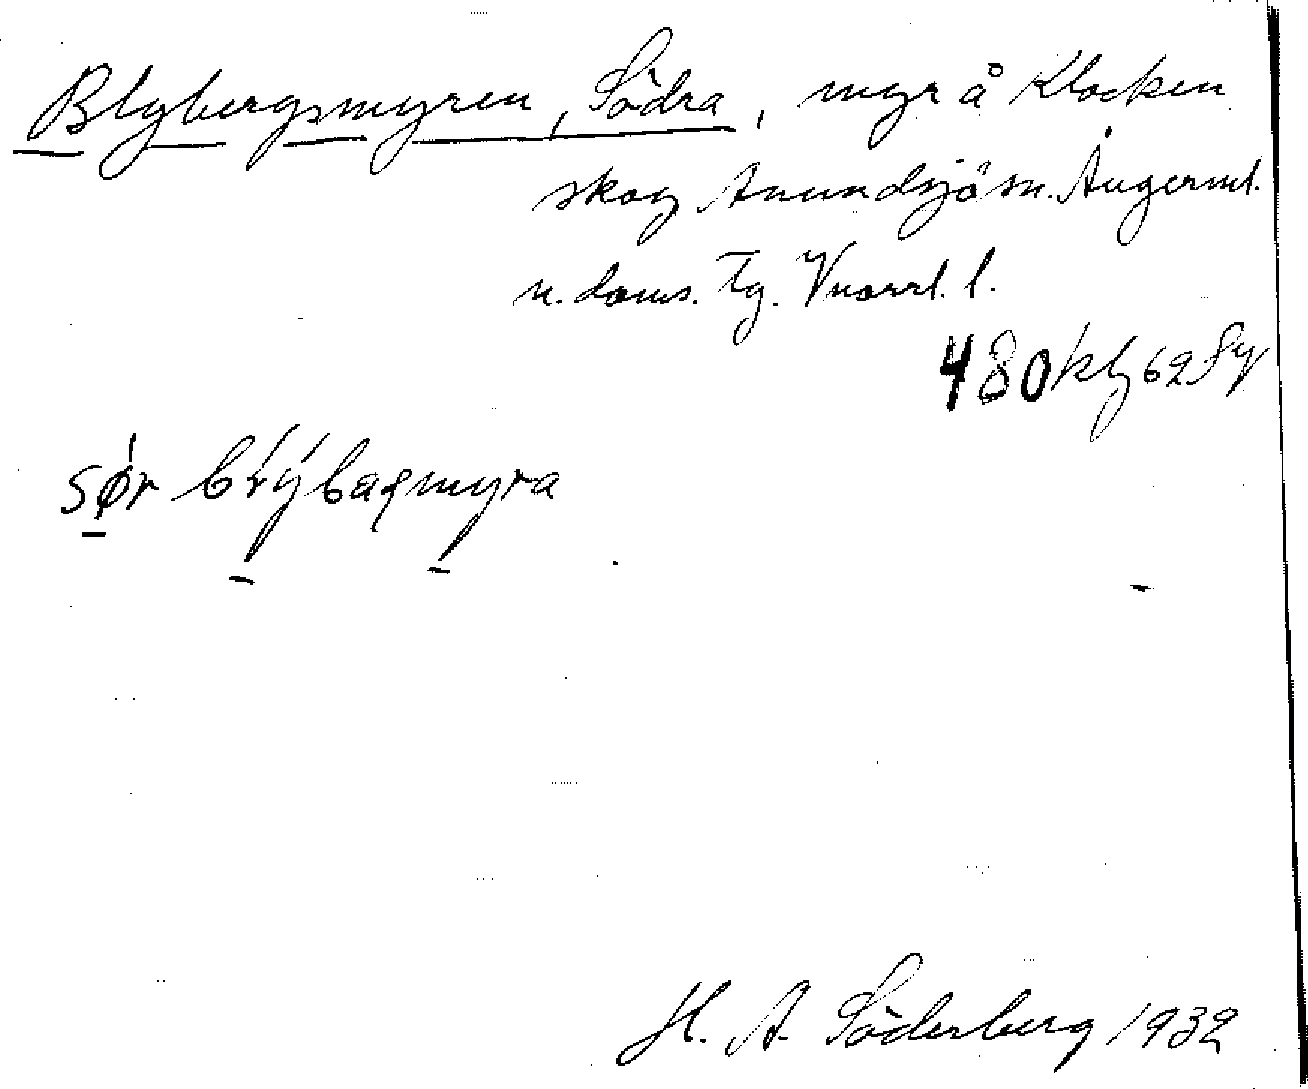 Blybergsmyren, Södra, myr å Klocken
skog Anundsjö sn. Ångerml.
n. doms. Tg. Vnorrl. l.
480 62
sør
H. A. Söderberg 1932